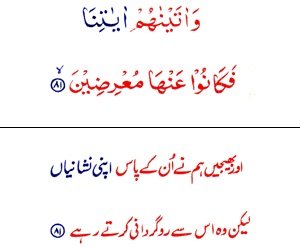 وَاٰتَيْنٰهُمْ اٰيٰتِنَا
فَكَانُوْا عَنْهَا مُعْرِضِيْنَ ۙ‏﴿۸۱﴾
اور بھیجیں ہم نے اُن کے پاس اپنی نشانیاں
لیکن وہ اس سے روگردانی کرتے رہے ﴿۸۱﴾